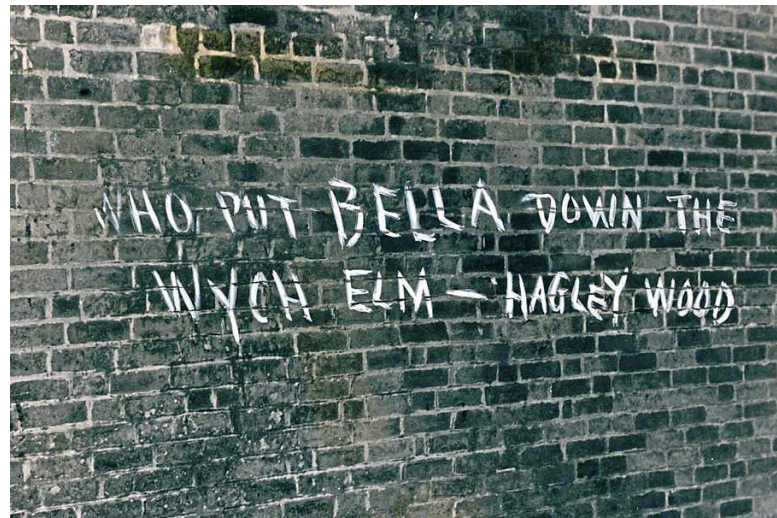 WHO PUT BELLA DOWN THE
WYCH ELM - HAGLEY WOOD